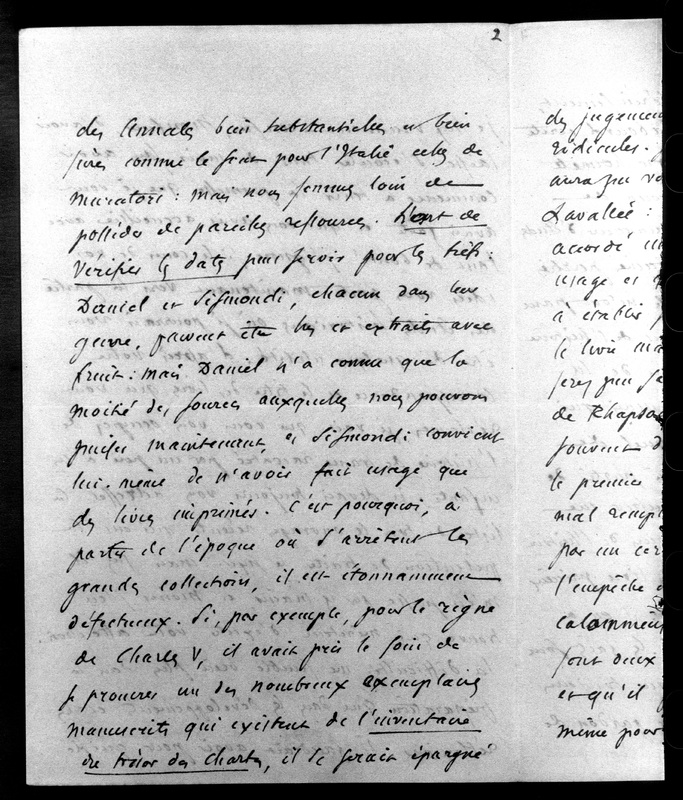 2
des Annales bien substantielles et bien
sures comme le sont pour l'Italie celles de
Muratori : mais nous sommes loin de
posséder de pareilles ressources. L'art de
verifier les dates peut servir pour les
Daniel et Sismondi, chacun dans leur
genre, peuvent être lus et extraits avec
fruit : mais Daniel n'a connu que la
moitié des sources auxquelles nous pouvons
puiser maintenant, et Sismondi convient
lui-même de n'avoir fait usage que
des livres imprimés. C'est pourquoi, à
partir de l'époque où s'arrêtent les
grandes collections, il est étonnamment
défectueux. Si, par exemple, pour le règne
de Charles V, il avait pris le soin de
se procurer un des nombreux exemplaires
manuscrits qui existent de l'inventaire
du trésor des Chartes, il se serait épargné
des jugemen
ridicules.
aura pu vo
Lavallée :
accorde
usage et
à établir
le livre
de Rhapso
souvent d
le premier
mal rempl
par un cer
l'empêche
calommeu
sont deux
et qu'il
même pour